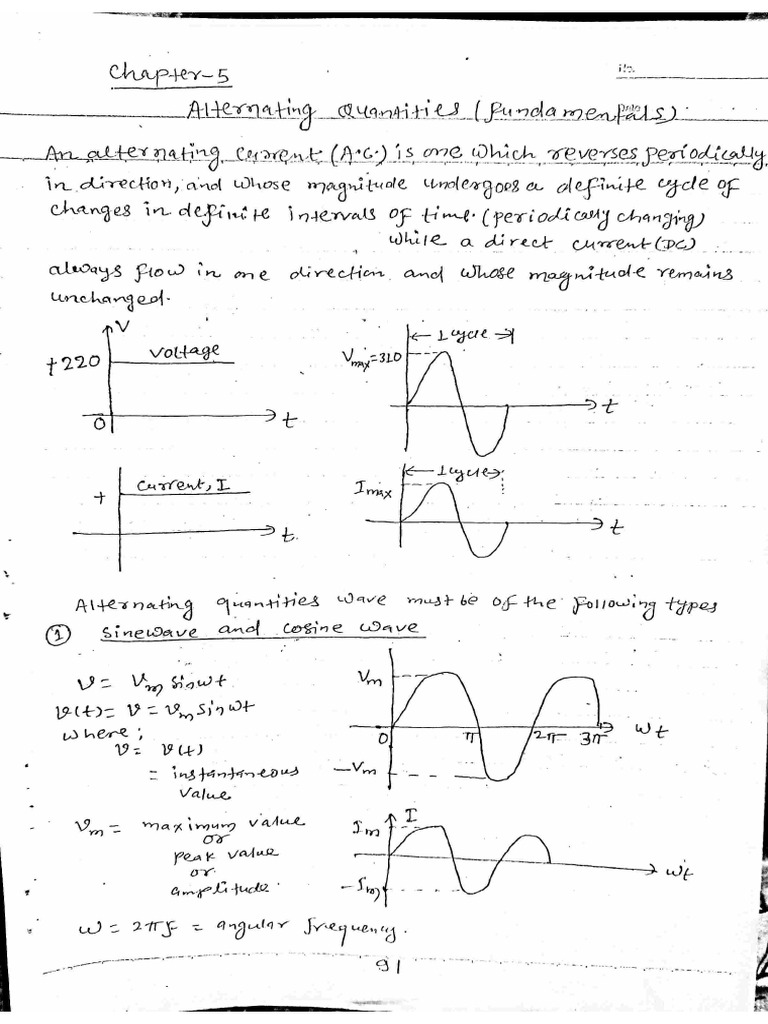 Chapter-5
Alternating Quantities (fundamentals)
An alternating current (A.C.) is one which reverses periodically
in direction, and whose magnitude undergoes a definite cycle of
changes in definite intervals of time. (periodically changing)
while a direct current (DC)
always flow in one direction and whose magnitude remains
unchanged.
V
+220
voltage
0
t
Vmax=310
1 cycle
t
+
Current, I
t
Imax
1 cycle
t
Alternating quantities wave must be of the following types
① sinewave and cosine wave
v = Vm sinwt
v(t) = v = Vm sinwt
where;
v = v(t)
= instantaneous
value
Vm = maximum value
or
peak value
or
amplitude.
w = 2πf = angular frequency.
Vm
0
π
2π
3π
wt
-Vm
I
Im
-Im
wt
91